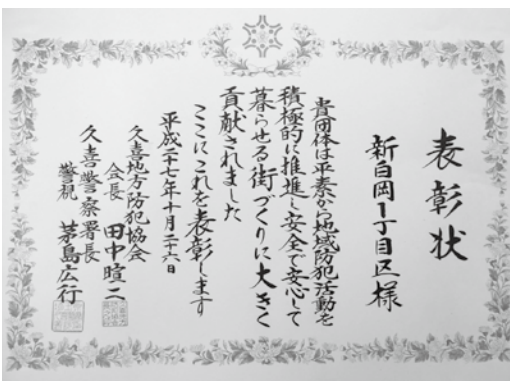 表彰状
新白岡1丁目区様
貴団体は平素から地域防犯活動を
積極的に推進し安全で安心して
暮らせる街づくりに大きく
貢献されました
ここにこれを表彰します
平成二十七年十月二十六日
久喜地方防犯協会
会長 田中暄二
久喜警察署長
警視 茅島広行